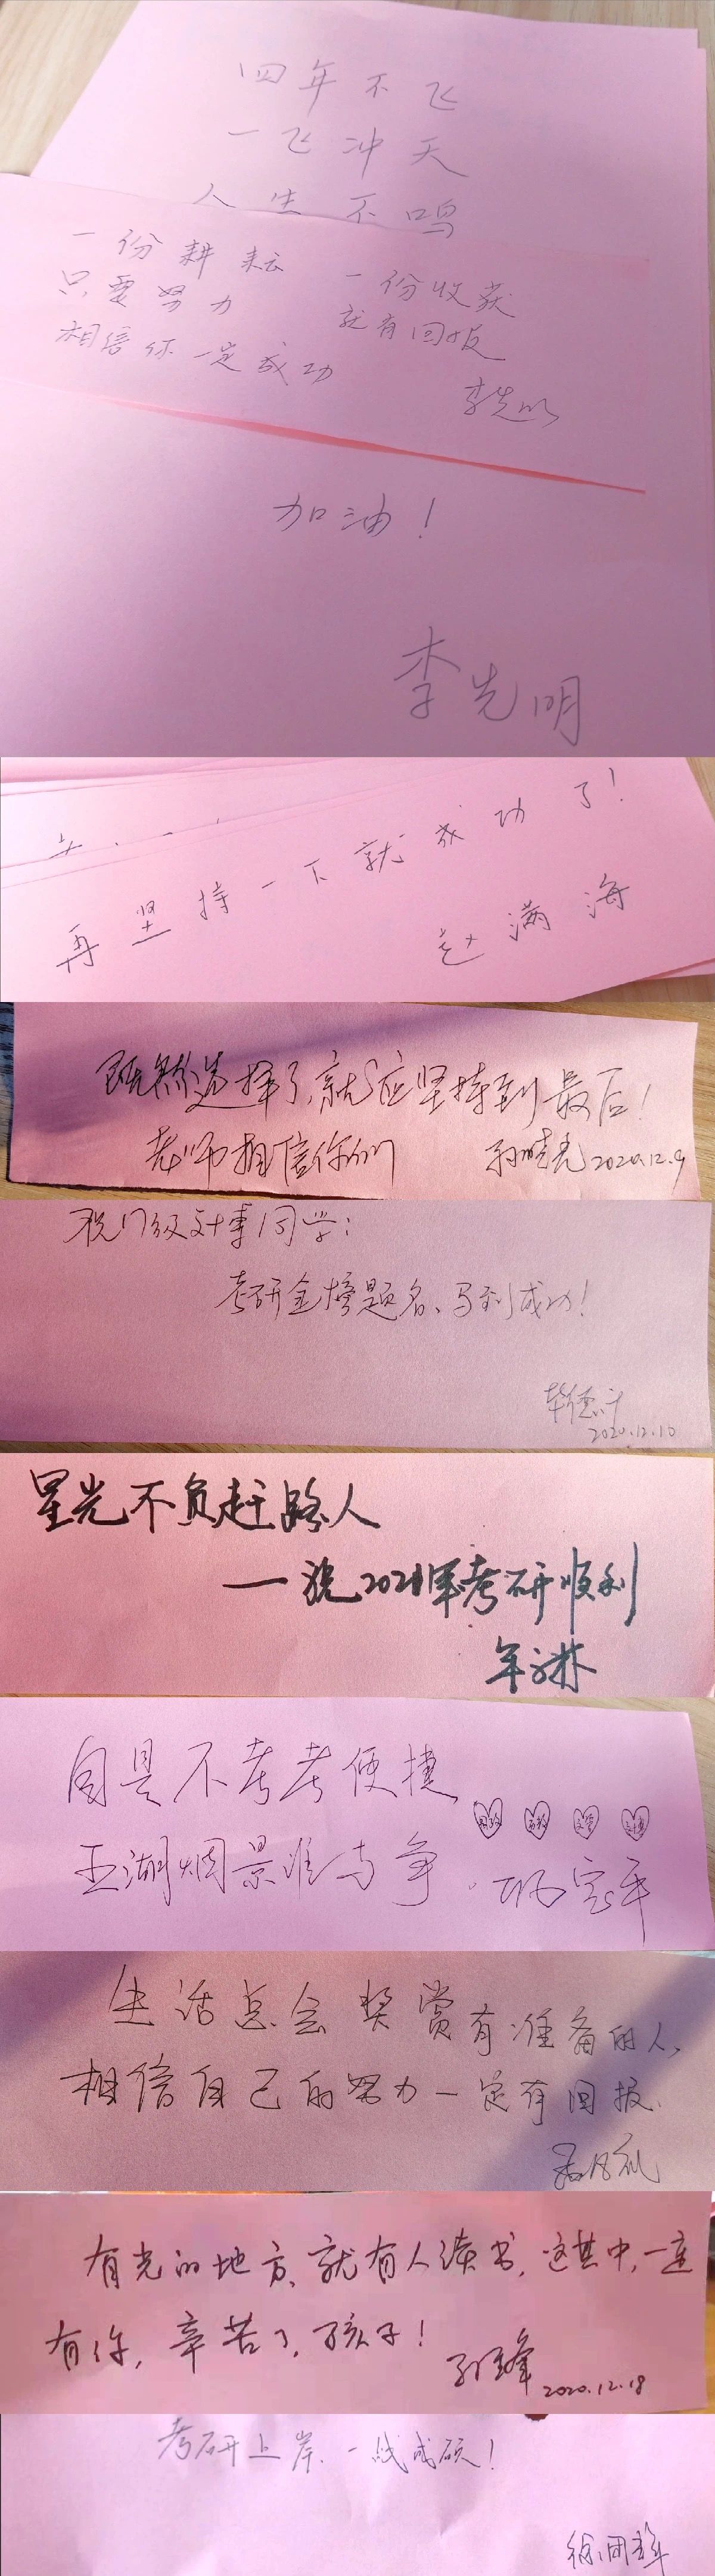 四年不飞
一飞冲天
人生不鸣
一份耕耘 一份收获
只要努力 就有回报
相信你一定成功
李先明
加油!
李先明
再坚持一下就成功了!
赵满海
既然选择了,就应坚持到最后!
老师相信你们 孙晓光 2020.12.9
祝17级计事同学:
考研金榜题名、马到成功!
2020.12.10
星光不负赶路人
—祝2021年考研顺利
自是不考考便捷
五湖烟景谁与争. 巩宪平
生活总会奖赏有准备的人,
相信自己的努力一定有回报.
有光的地方,就有人读书,这其中,一定
有你,辛苦了,孩子!
2020.12.18
考研上岸、一战成硕!